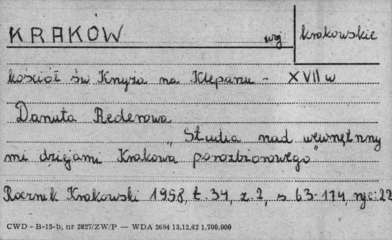 KRAKÓW woj krakowskie
kościół św Krzyża na Kleparzu - XVII w
Danuta Rederowa
„Studia nad wewnętrzny
mi dziejami Krakowa porozbiorowego"
Rocznik Krakowski 1958, t. 34, z. 2, s 63-174, ryc: 22
CWD - B-15-b, nr 2827/ZW/P — WDA 2694 13.12.62 1.700.000